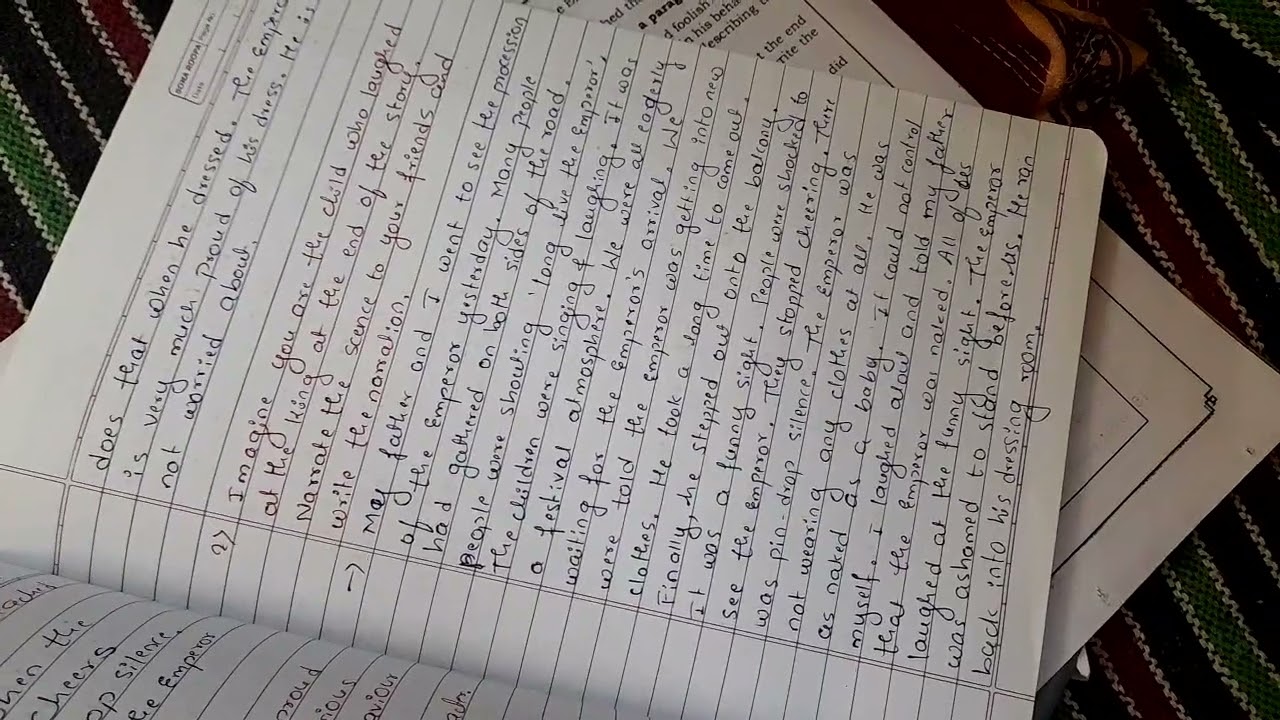 does that when he dressed. The Empero
is very much proud of his dress. He is
not worried about.
2) Imagine you are the child who laughed
at the king at the end of the story.
Narrate the scence to your friends and
write the narration.
→ My father and I went to see the procession
of the Emperor yesterday. Many people
had gathered on both sides of the road.
People were shouting 'long live the Emperor'.
The children were singing & laughing. It was
a festival atmosphere. We were all eagerly
waiting for the Emperor's arrival. We
were told the emperor was getting into new
clothes. He took a long time to come out.
Finally, he stepped out onto the balcony.
It was a funny sight. People were shocked to
see the Emperor. They stopped cheering. There
was pin-drop silence. The Emperor was
not wearing any clothes at all. He was
as naked as a baby. I could not control
myself. I laughed aloud and told my father
that the Emperor was naked. All of us
laughed at the funny sight. The Emperor
was ashamed to stand before us. He ran
back into his dressing room.
when the
cheers
op silence.
the Emperor
proud
rious
aviour
a parag
foolish
his beha
escribing
t the end
rite the
did